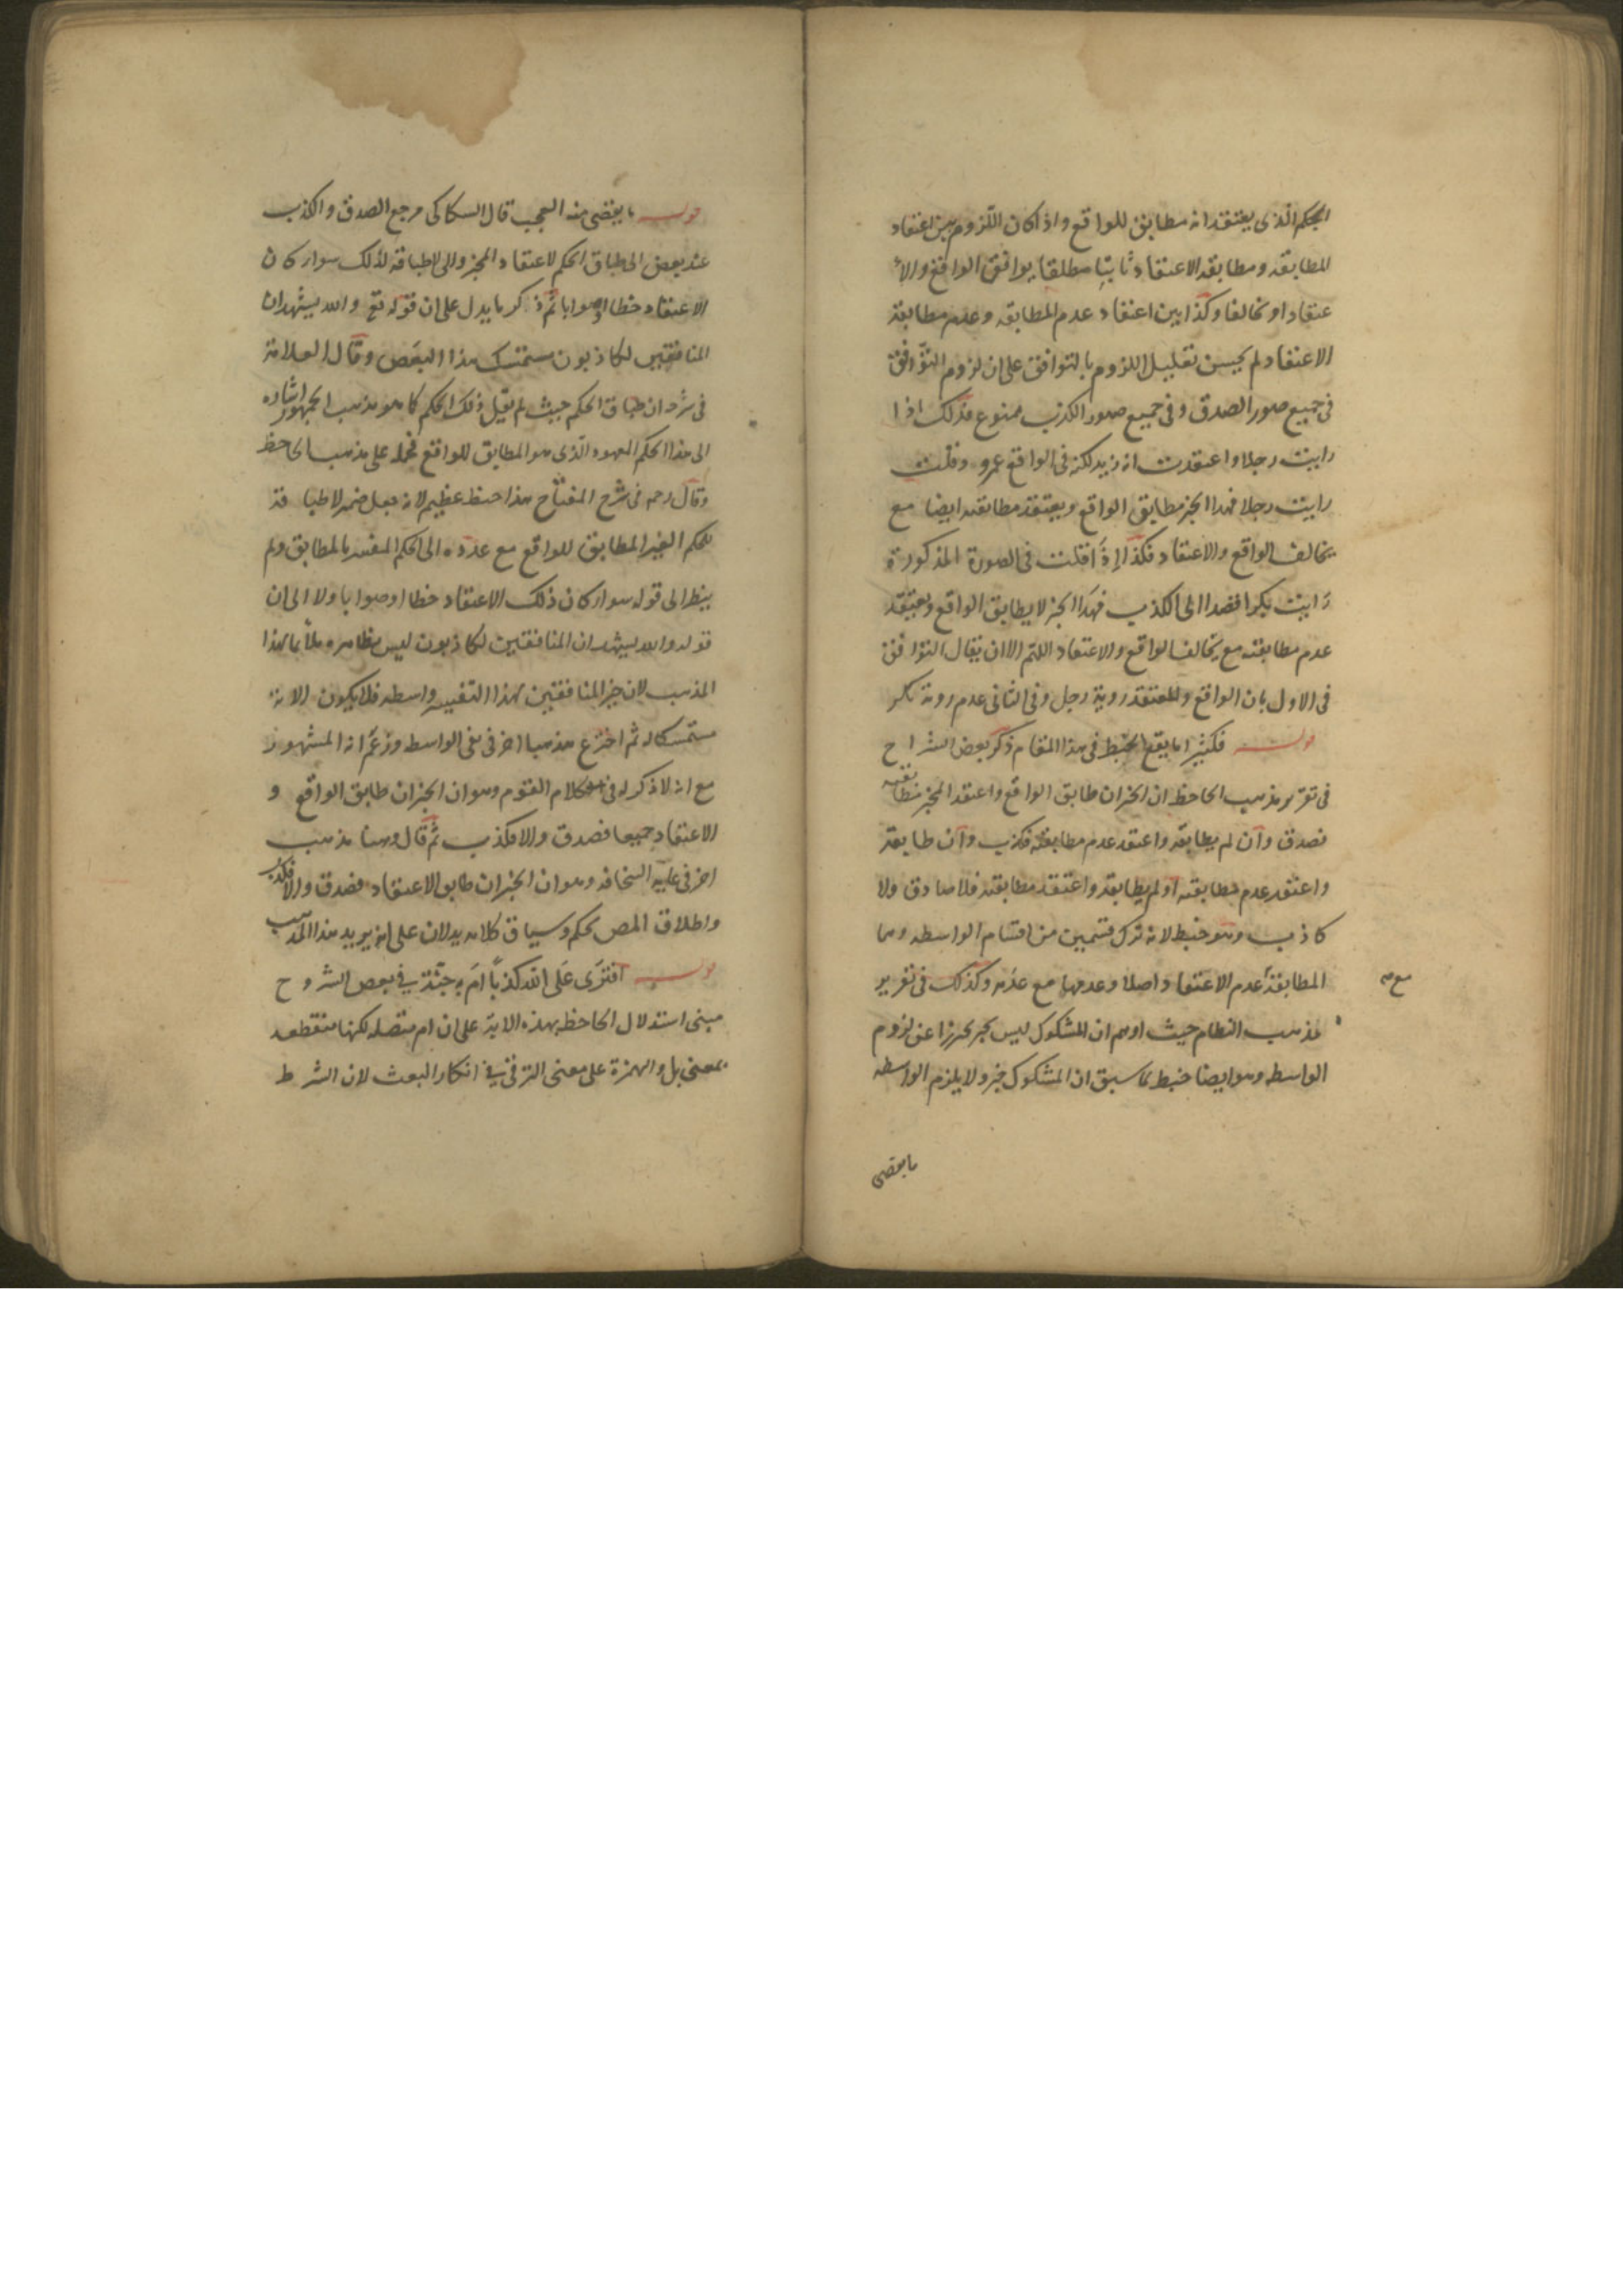 الحكم الذى يعتقد انه مطابق للواقع واذا كان اللزوم بين اعتقاد
المطابقة ومطابقة الاعتقاد ثابتا مطلقا يوافق الواقع والا
عتقاد او تخالفا وكذا بين اعتقاد عدم المطابقه وعدم مطابقة
الاعتقاد لم يحسن تعليل اللزوم بالتوافق على ان لزوم التوافق
فى جميع صور الصدق وفى جميع صور الكذب ممنوع فذلك اذا
رايت رجلا واعتقدت انه زيد لكنه فى الواقع عمرو وقلت
رايت رجلا فهذا الخبر مطابق الواقع ويعتقد مطابقته ايضا مع
تخالف الواقع والاعتقاد فكذا اذا قلت فى الصورة المذكورة
رايت بكرا قصدا الى الكذب فهذا الخبر لا يطابق الواقع ويعتقد
عدم مطابقته مع تخالف الواقع والاعتقاد اللهم الا ان يقال التوافق
فى الاول بان الواقع والمعتقد روية رجل وفى الثانى عدم روية بكر
قوله فكثيرا ما يقع الخبط فى هذا المقام ذكر بعض الشراح
فى تقرير مذهب الجاحظ ان الخبر ان طابق الواقع واعتقد المخبر مطابقته
فصدق وان لم يطابقه واعتقد عدم مطابقته فكذب وان طابقه
واعتقد عدم مطابقته او لم يطابقه واعتقد مطابقته فلا صادق ولا
كاذب وهو خبط لانه ترك قسمين من اقسام الواسطه وهما
المطابقة مع عدم الاعتقاد اصلا وعدمها مع عدمه وكذلك فى تقرير
مذهب النظام حيث اوهم ان المشكوك ليس بخبر تحرزا عن لزوم
الواسطه وهو ايضا خبط لما سبق ان المشكوك خبر ولا يلزم الواسطه
ما يقضى
قوله ما يقضى منه العجب قال السكاكى مرجع الصدق والكذب
عند بعض الى طباق الحكم لاعتقاد المخبر والى لا طباقه لذلك سواء كان
الاعتقاد خطا او صوابا ثم ذكر ما يدل على ان قوله تع والله يشهد ان
المنافقين لكاذبون متمسك هذا البعض وقال العلامة
فى شرحه ان طباق الحكم حيث لم يقل ذلك الحكم كما هو مذهب الجمهور اشاره
الى هذا الحكم المعهود الذى هو المطابق للواقع فحمله على مذهب الجاحظ
وقال رحمه فى شرح المفتاح هذا خبط عظيم لانه جعل ضمير لا طباقه
للحكم الغير المطابق للواقع مع عدده الى الحكم المفسر بالمطابق ولم
ينظر الى قوله سواء كان ذلك الاعتقاد خطا او صوابا ولا الى ان
قوله والله يشهد ان المنافقين لكاذبون ليس بظاهره ملائما لهذا
المذهب لان خبر المنافقين بهذا التفسير واسطه فلا يكون الاية
متمسكا له ثم اخترع مذهبا اخر فى نفى الواسطه وزعم انه المشهور
مع انه لا ذكر له فى كلام القوم وهو ان الخبر ان طابق الواقع و
الاعتقاد جميعا فصدق والا فكذب ثم قال وهنا مذهب
اخر فى غاية السخافه وهو ان الخبر ان طابق الاعتقاد فصدق والا فكذب
واطلاق المص بحكم وسياق كلامه يدلان على انه يريد هذا المذهب
قوله افترى على الله كذبا ام به جنة فى بعض الشروح
مبنى استدلال الجاحظ بهذه الاية على ان ام متصله لكنها منقطعه
بمعنى بل والهمزة على معنى الترقى فى انكار البعث لان الشرط